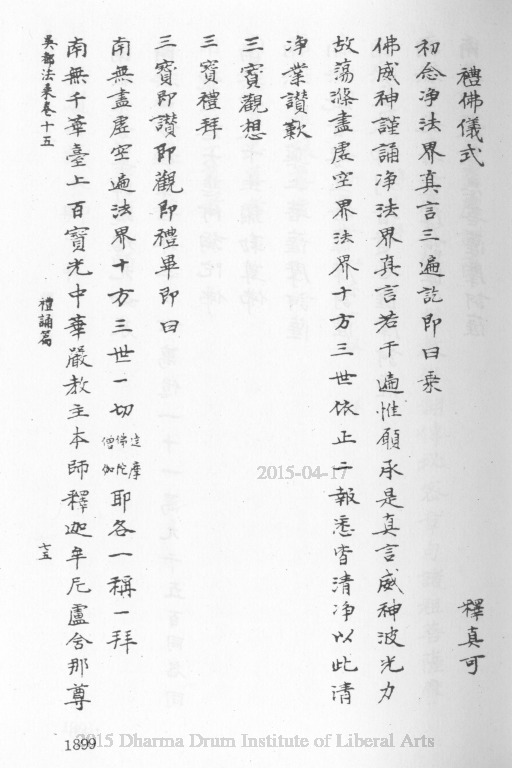 禮佛儀式
釋真可
初念淨法界真言三遍訖即曰乘
佛威神謹誦淨法界真言若干遍惟願承是真言威神波光力
故蕩滌盡虛空界法界十方三世依正二報悉皆清淨以此清
淨業讚歎
三寶觀想
三寶禮拜
三寶即讚即觀即禮畢即曰
南無盡虛空遍法界十方三世一切達摩佛陀僧伽耶各一稱一拜
南無千華臺上百寶光中華嚴教主本師釋迦牟尼盧舍那尊
吳都法乘卷十五
禮誦篇
十五
1899
2015-04-17
2015 Dharma Drum Institute of Liberal Arts